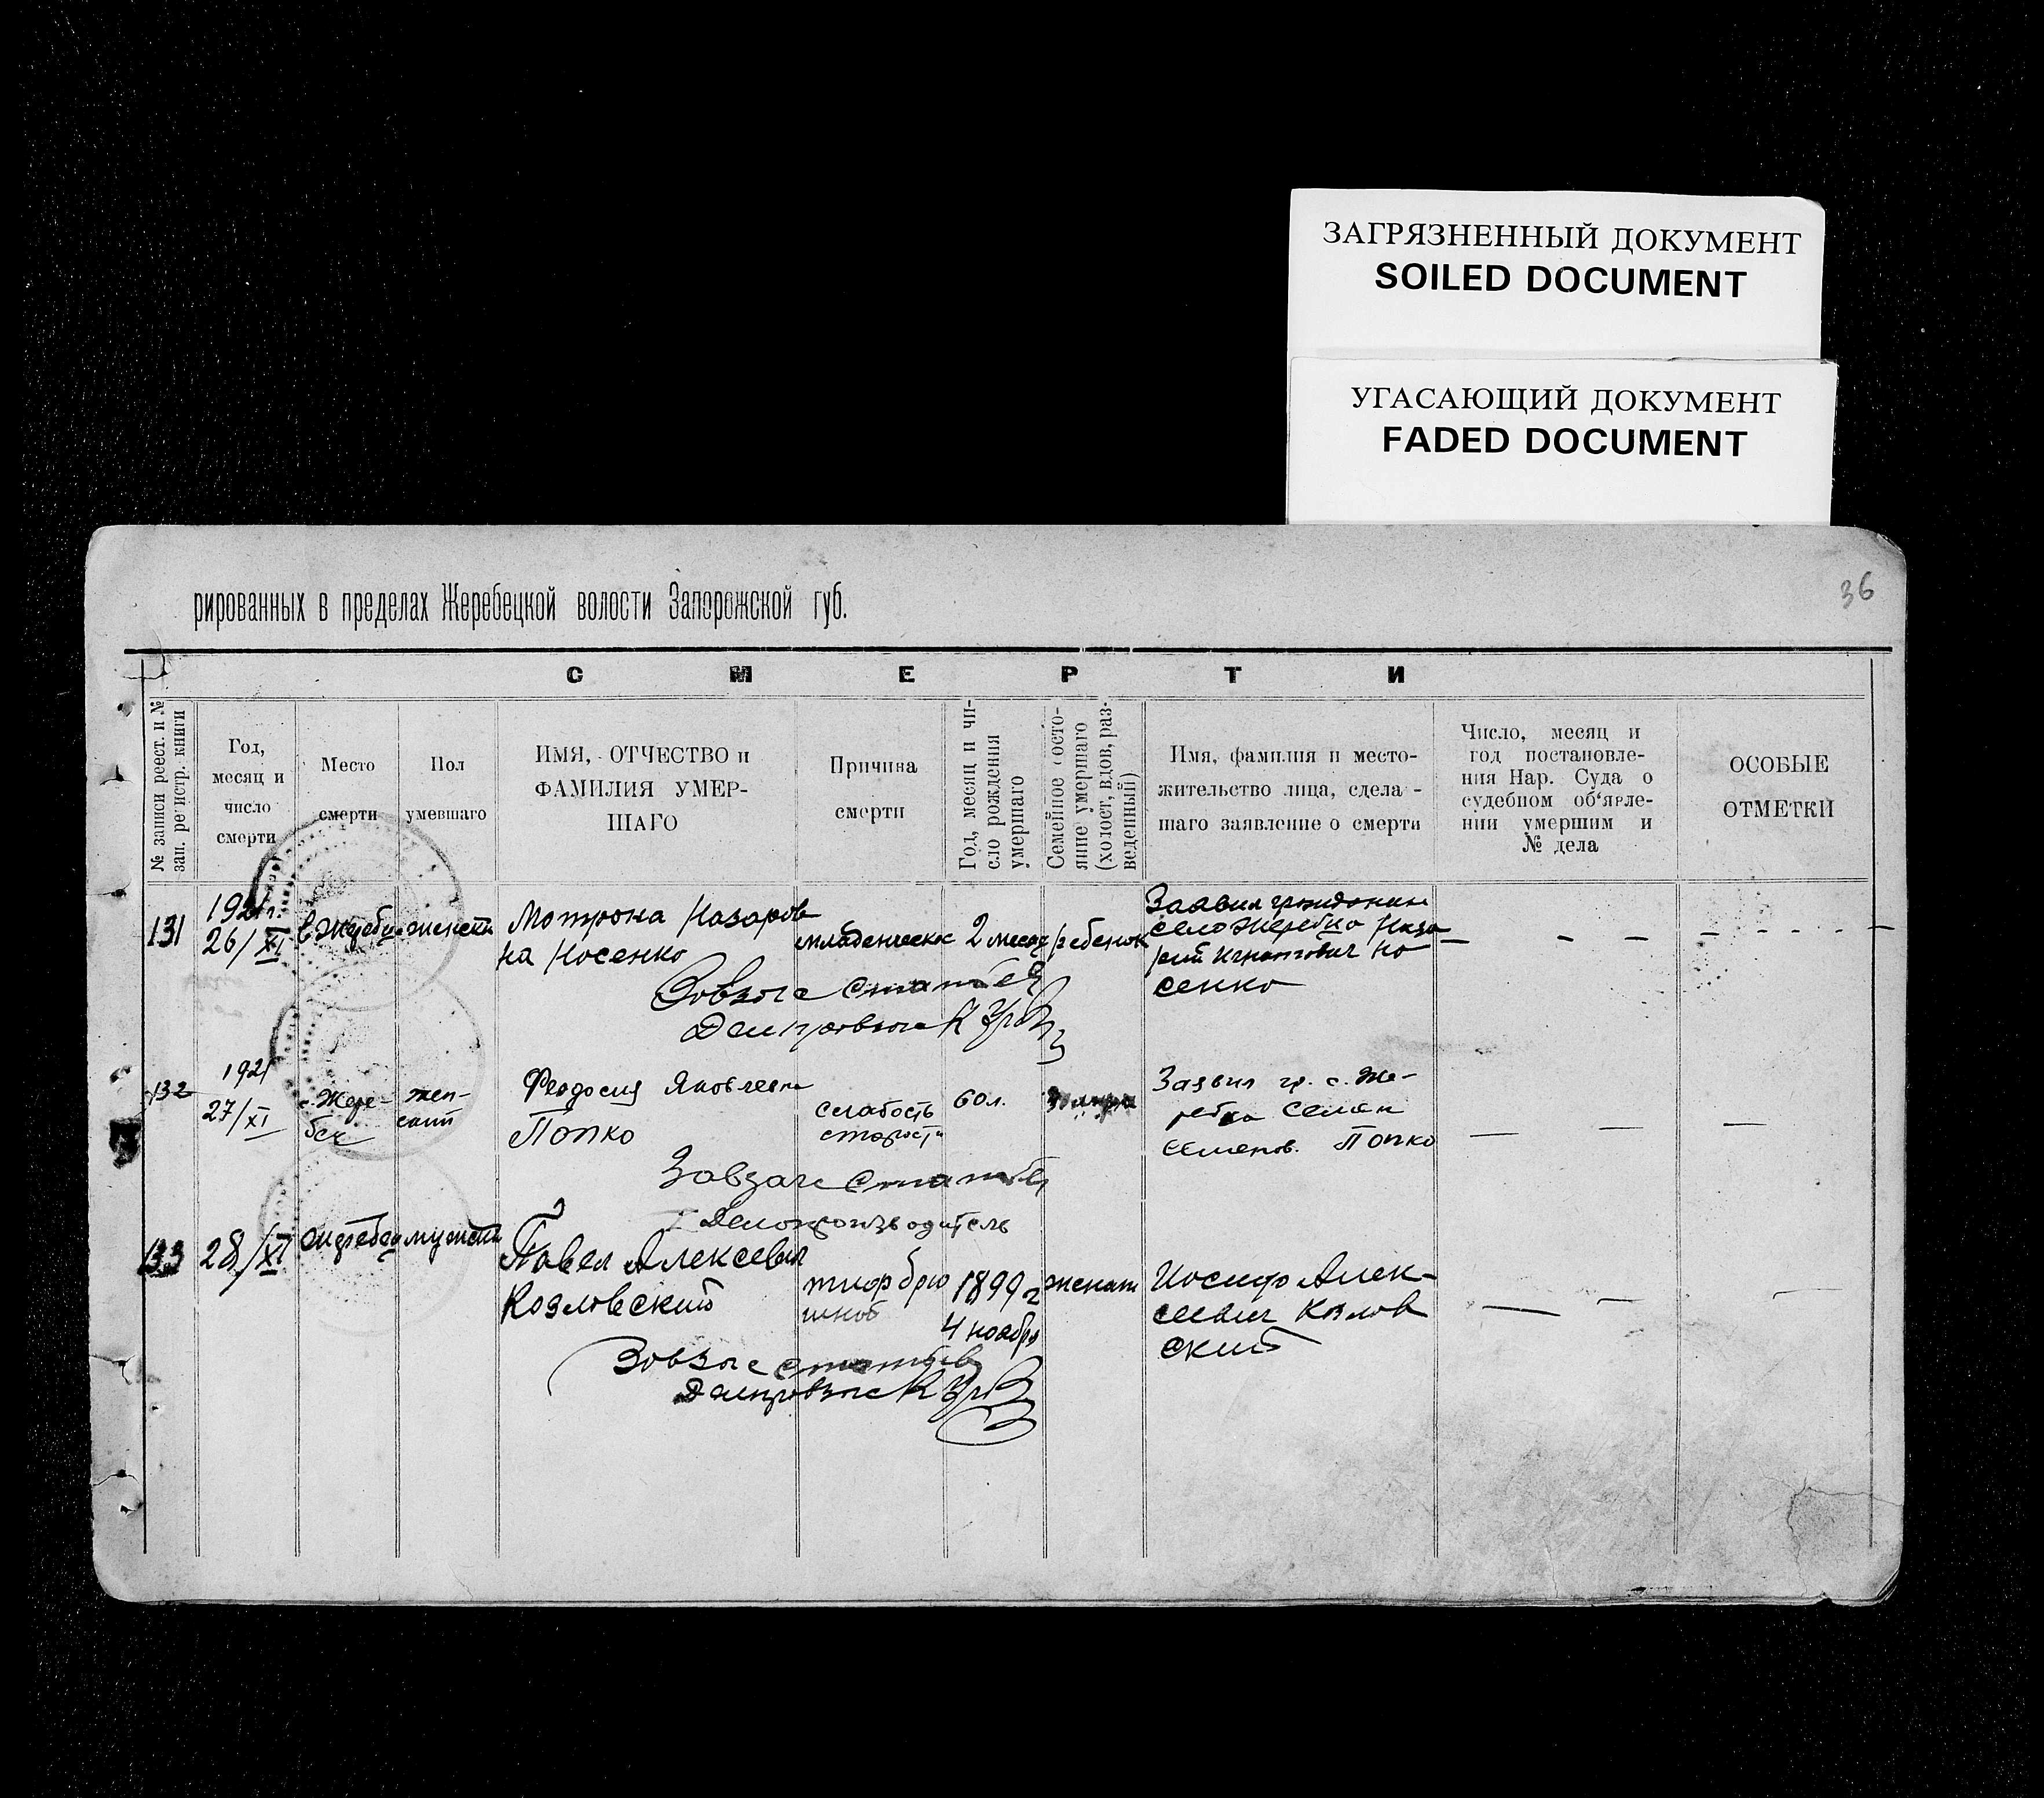 ЗАГРЯЗНЕННЫЙ ДОКУМЕНТ
SOILED DOCUMENT
УГАСАЮЩИЙ ДОКУМЕНТ
FADED DOCUMENT
36
рированных в пределах Жеребецкой волости Запорожской губ.
СМЕРТИ
№ записи реест. и №
зап. регистр. книги
Год,
месяц и
число
смерти
Место
смерти
Пол
умевшаго
ИМЯ, ОТЧЕСТВО и
ФАМИЛИЯ УМЕР-
ШАГО
Причина
смерти
Год, месяц и чи-
сло рождения
умершаго
Семейное состо-
яние умершаго
(холост, вдов, раз-
веденный)
Имя, фамилия и место-
жительство лица, сдела -
шаго заявление о смерти
Число, месяц и
год постановле-
ния Нар. Суда о
судебном об'явле-
нии умершим и
№ дела
ОСОБЫЕ
ОТМЕТКИ
131
1921 г.
26/XI
женски
Мотрона Назаров
на Носенко
младенческ
2 месяц
ребенок
Заявил гражданин
село Жеребца Наза
рий Игнатович Но
сенко
132
1921
27/XI
с. Жере-
бец
жен-
ский
Феодосия Яковлевна
Попко
слабость
старости
60 л.
Заявил гр. с. Же-
ребца Семен
Семенов. Попко
Делопроизводитель
133
28/XI
мужски
Павел Алексевич
Козловский
тиф брю
шной
1899 г
4 ноября
женат
Иосиф Алек-
сеевич Козлов
ский